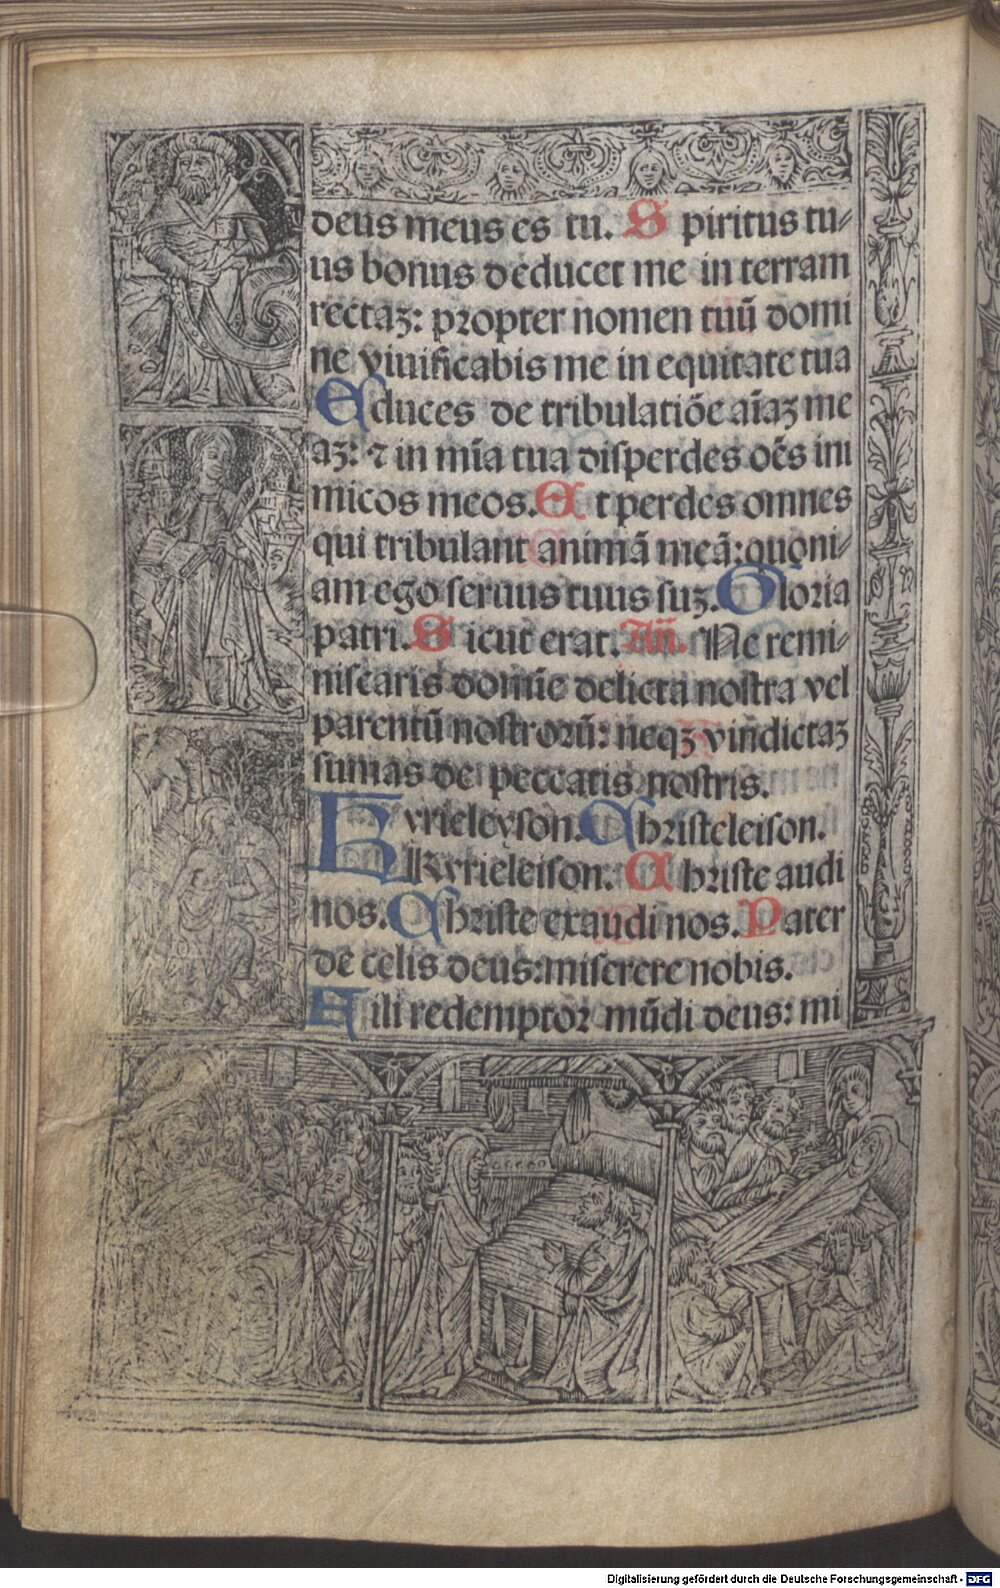 deus meus es tu. Spiritus tu⸗
us bonus deducet me in terram
rectaꝫ: propter nomen tuū domi
ne viuificabis me in equitate tua
Educes de tribulatiōe aīaꝫ me
aꝫ: ⁊ in mīa tua disperdes oēs ini
micos meos. Et perdes omnes
qui tribulant animā meā: quoni⸗
am ego seruus tuus suꝫ. Gloria
patri. Sicut erat. Añ. Ne remi⸗
niscaris domīe delicta nostra vel
parentū nostrorū: neqꝫ vindictaꝫ
sumas de peccatis nostris.
Kyrieleyson. Christeleison.
Kyrieleison. Christe audi
nos. Christe exaudi nos. Pater
de celis deus: miserere nobis.
Fili redemptor mūdi deus: mi
Digitalisierung gefördert durch die Deutsche Forschungsgemeinschaft - DFG